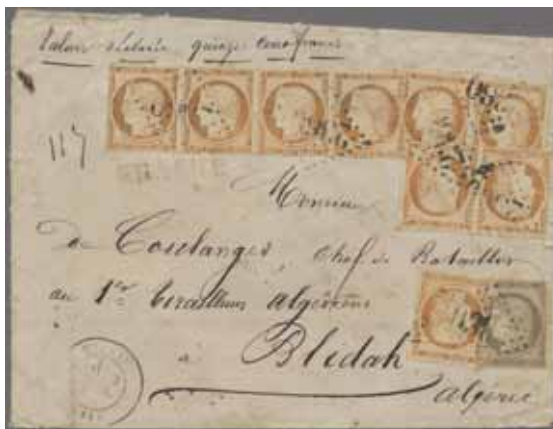 Valeur déclarée quinze cents francs
117
CHARGÉ
Monsieur
de Coulanges Chef de Bataillon
au 1er tirailleurs algériens
a
Blidah
Algérie